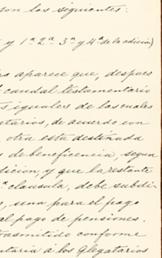 son los siguientes:
y 1ª 2ª 3ª y 4ª de la edición)
aparece que, despues
caudal testamentario
iguales de las cuales
etarios, de acuerdo con
otra está destinada
de beneficencia, segun
dicion, y que la restante
ª clausula, debe subdi-
, una para el pago
el pago de pensiones.
trasmitido conforme
entaria á los legatarios